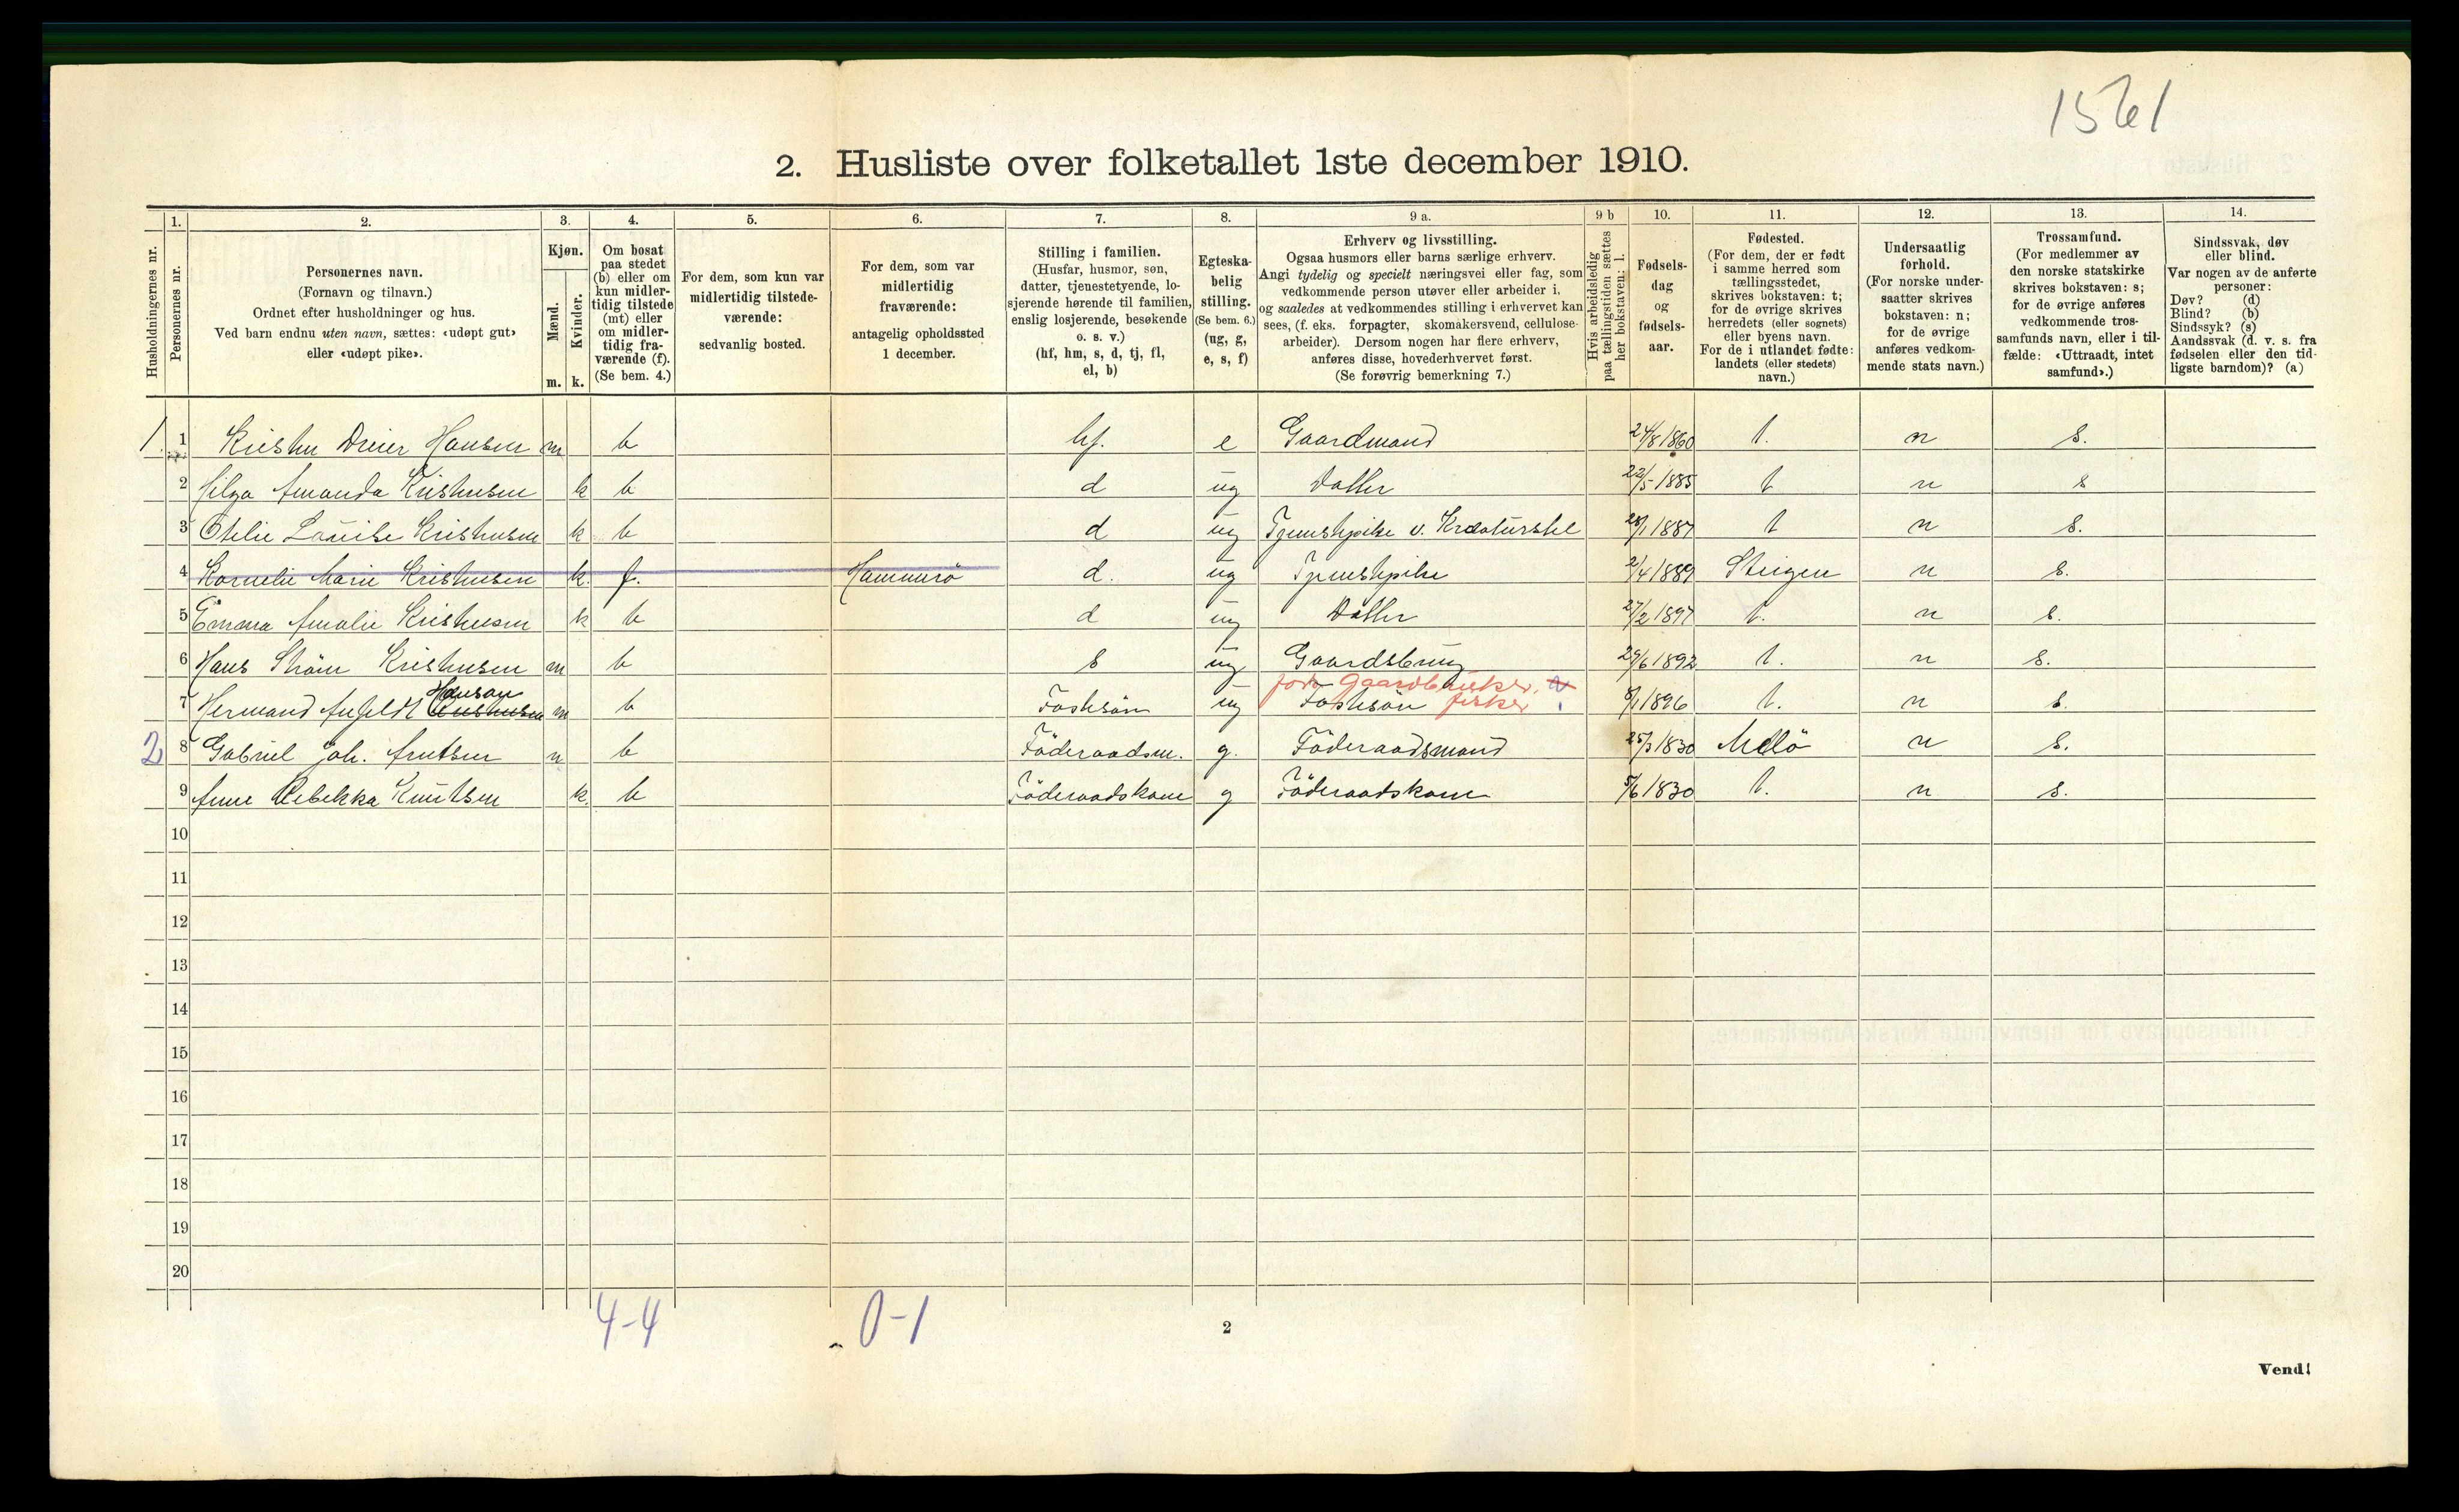 1561
2. Husliste over folketallet 1ste december 1910.
Husholdningernes nr.
1. Personernes nr.
2. Personernes navn.
(Fornavn og tilnavn.)
Ordnet efter husholdninger og hus.
Ved barn endnu uten navn, sættes: «udøpt gut»
eller «udøpt pike».
3. Kjøn.
Mænd. m.
Kvinder. k.
4. Om bosat
paa stedet
(b) eller om
kun midler-
tidig tilstede
(mt) eller
om midler-
tidig fra-
værende (f).
(Se bem. 4.)
5. For dem, som kun var
midlertidig tilstede-
værende:
sedvanlig bosted.
6. For dem, som var
midlertidig
fraværende:
antagelig opholdssted
1 december.
7. Stilling i familien.
(Husfar, husmor, søn,
datter, tjenestetyende, lo-
sjerende hørende til familien,
enslig losjerende, besøkende
o. s. v.)
(hf, hm, s, d, tj, fl,
el, b)
8. Egteska-
belig
stilling.
(Se bem. 6.)
(ug, g,
e, s, f)
9 a. Erhverv og livsstilling.
Ogsaa husmors eller barns særlige erhverv.
Angi tydelig og specielt næringsvei eller fag, som
vedkommende person utøver eller arbeider i,
og saaledes at vedkommendes stilling i erhvervet kan
sees, (f. eks. forpagter, skomakersvend, cellulose-
arbeider). Dersom nogen har flere erhverv,
anføres disse, hovederhvervet først.
(Se forøvrig bemerkning 7.)
9 b Hvis arbeidsledig
paa tællingstiden sættes
her bokstaven: l.
10. Fødsels-
dag
og
fødsels-
aar.
11. Fødested.
(For dem, der er født
i samme herred som
tællingsstedet,
skrives bokstaven: t;
for de øvrige skrives
herredets (eller sognets)
eller byens navn.
For de i utlandet fødte:
landets (eller stedets)
navn.)
12. Undersaatlig
forhold.
(For norske under-
saatter skrives
bokstaven: n;
for de øvrige
anføres vedkom-
mende stats navn.)
13. Trossamfund.
(For medlemmer av
den norske statskirke
skrives bokstaven: s;
for de øvrige anføres
vedkommende tros-
samfunds navn, eller i til-
fælde: «Uttraadt, intet
samfund».)
14. Sindssvak, døv
eller blind.
Var nogen av de anførte
personer:
Døv? (d)
Blind? (b)
Sindssyk? (s)
Aandssvak (d. v. s. fra
fødselen eller den tid-
ligste barndom)? (a)
1. 1 Kristen Dreier Hansen m b hf. e Gaardmand 24/8 1860 t. n s.
2 Hilga Amanda Kristensen k b d ug Datter 22/5 1885 t n s
3 Otelie Louise Kristensen k b d ug Tjenstepike v. Kreaturstel 28/1 1887 t n s.
4 Kornelie Marie Kristensen k. f. Hammerö d. ug Tjenstepike 2/4 1889 Steigen n s.
5 Emma Amalie Kristensen k b d ug Datter 27/2 1897 t. n s.
6 Hans Ström Kristensen m b s ug Gaardsbrug 29/6 1892 t. n s.
Hansen
7 Hermand Anfeldt Kristensen m b Fostersön ug Fostersön fisker 8/1 1896 t. n s.
2 8 Gabriel Joh. Knutsen m b Föderaadsm. g. Föderaadsmand 25/3 1830 Melö n s.
9 Anne Rebekka Knutsen k. b Föderaadskone g Föderaadskone 5/6 1830 t. n s.
10
11
12
13
14
15
16
17
18
19
20
4-4 0-1
2
Vend!